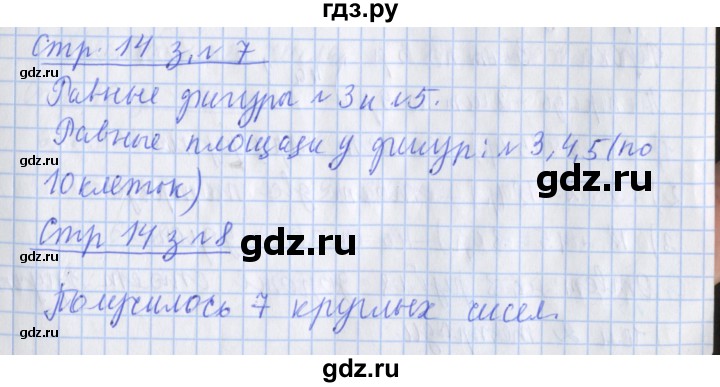 гдз.ру
Стр. 14 з. № 7
gdz.ru
gdz.ru
Равные фигуры №3 и №5.
Равные площади у фигур: № 3,4,5 (по
10 клеток)
gdz.ru
gdz.ru
Стр 14 з №8
gdz.ru
Получилось 7 круглых чисел.
gdz.ru
gdz.ru
gdz.ru